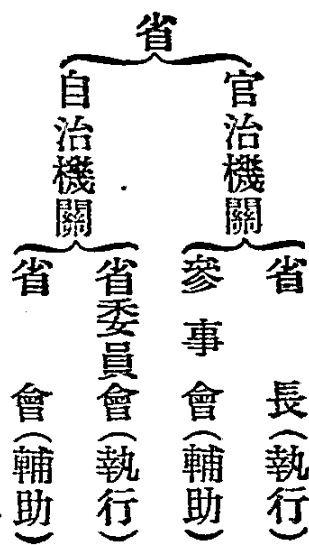 省
官治機關
省長（執行）
參事會（輔助）
自治機關
省委員會（執行）
省會（輔助）